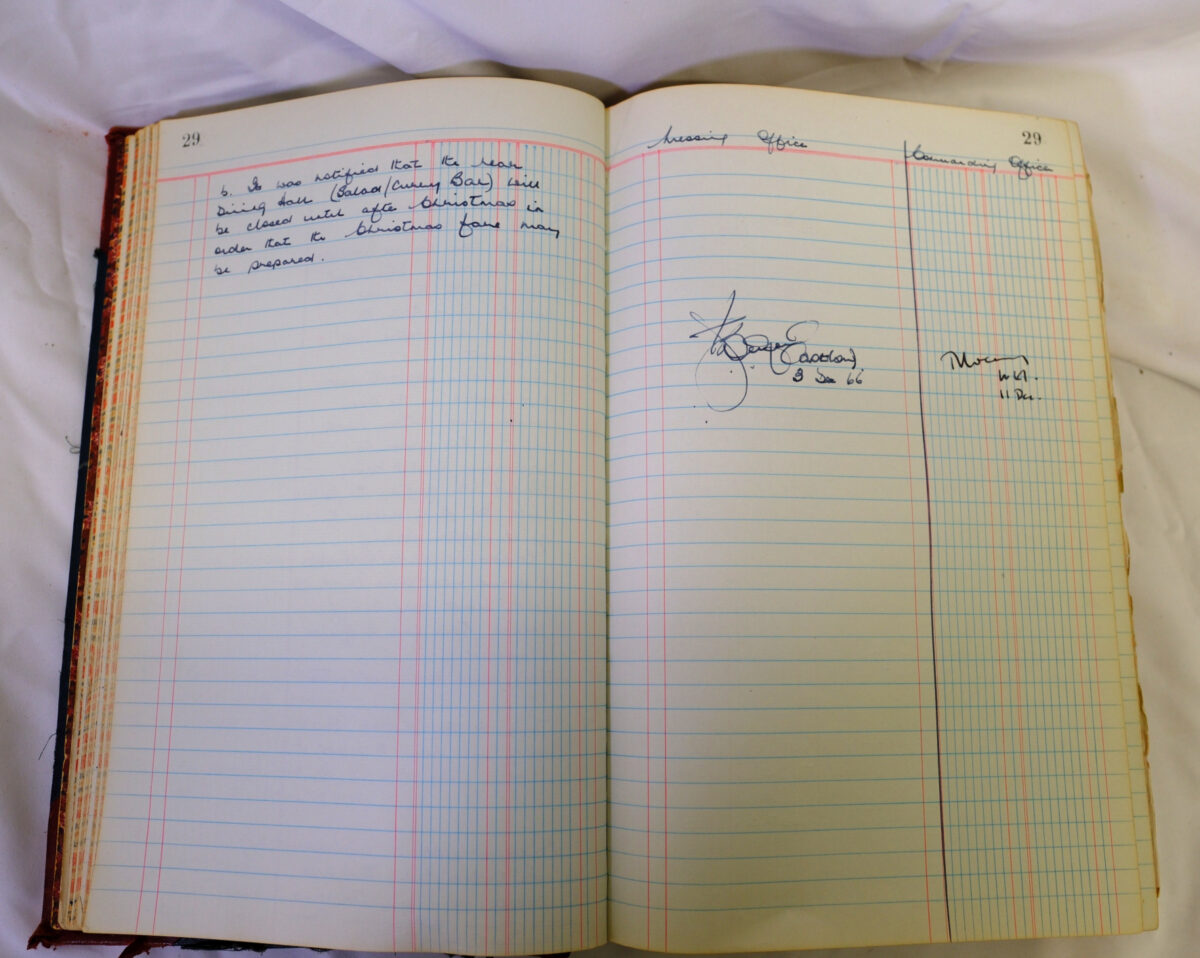 29
6. It was notified that the rear
Dining Hall (Salad/Curry Bar) will
be closed until after Christmas in
order that the Christmas fare may
be prepared.
Messing Officer
29
Commanding Officer
Dec 66
11 Dec.